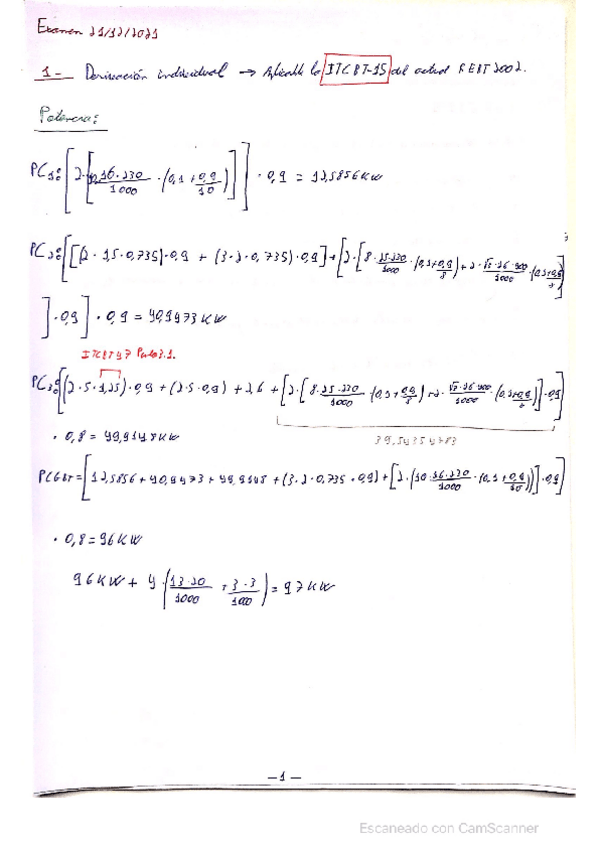 Examen 21/12/2021
1- Derivación individual → Aplicable la ITCBT-15 del actual REBT 2002.
Potencia:
PC1: [2·[16·230/1000 ·(0,1+0,9/10)]]·0,9 = 12,5856KW
PC2: [[(2·15·0,735)·0,9 + (3·2·0,735)·0,9]+[2·[8·25·230/1000 ·(0,1+0,9/8)+2·√3·16·400/1000 ·(0,1+0,9/2)
]·0,9]·0,9 = 40,9473KW
ITCBT47 Punto3.1.
PC3: [(2·5·1,25)·0,9+(2·5·0,9)+2,6+[2·[8·25·230/1000 ·(0,1+0,9/8)+2·√3·16·400/1000 ·(0,1+0,9/2)]·0,9]
·0,8 = 49,9148KW
39,54354783
PCGBT=[12,5856+40,9473+49,9148+(3·2·0,735·0,9)+[2·(10·16·230/1000 ·(0,1+0,9/10))]·0,9]
·0,8=96KW
96KW+4·(13·20/1000 +3·3/1000)=97KW
-1-
Escaneado con CamScanner